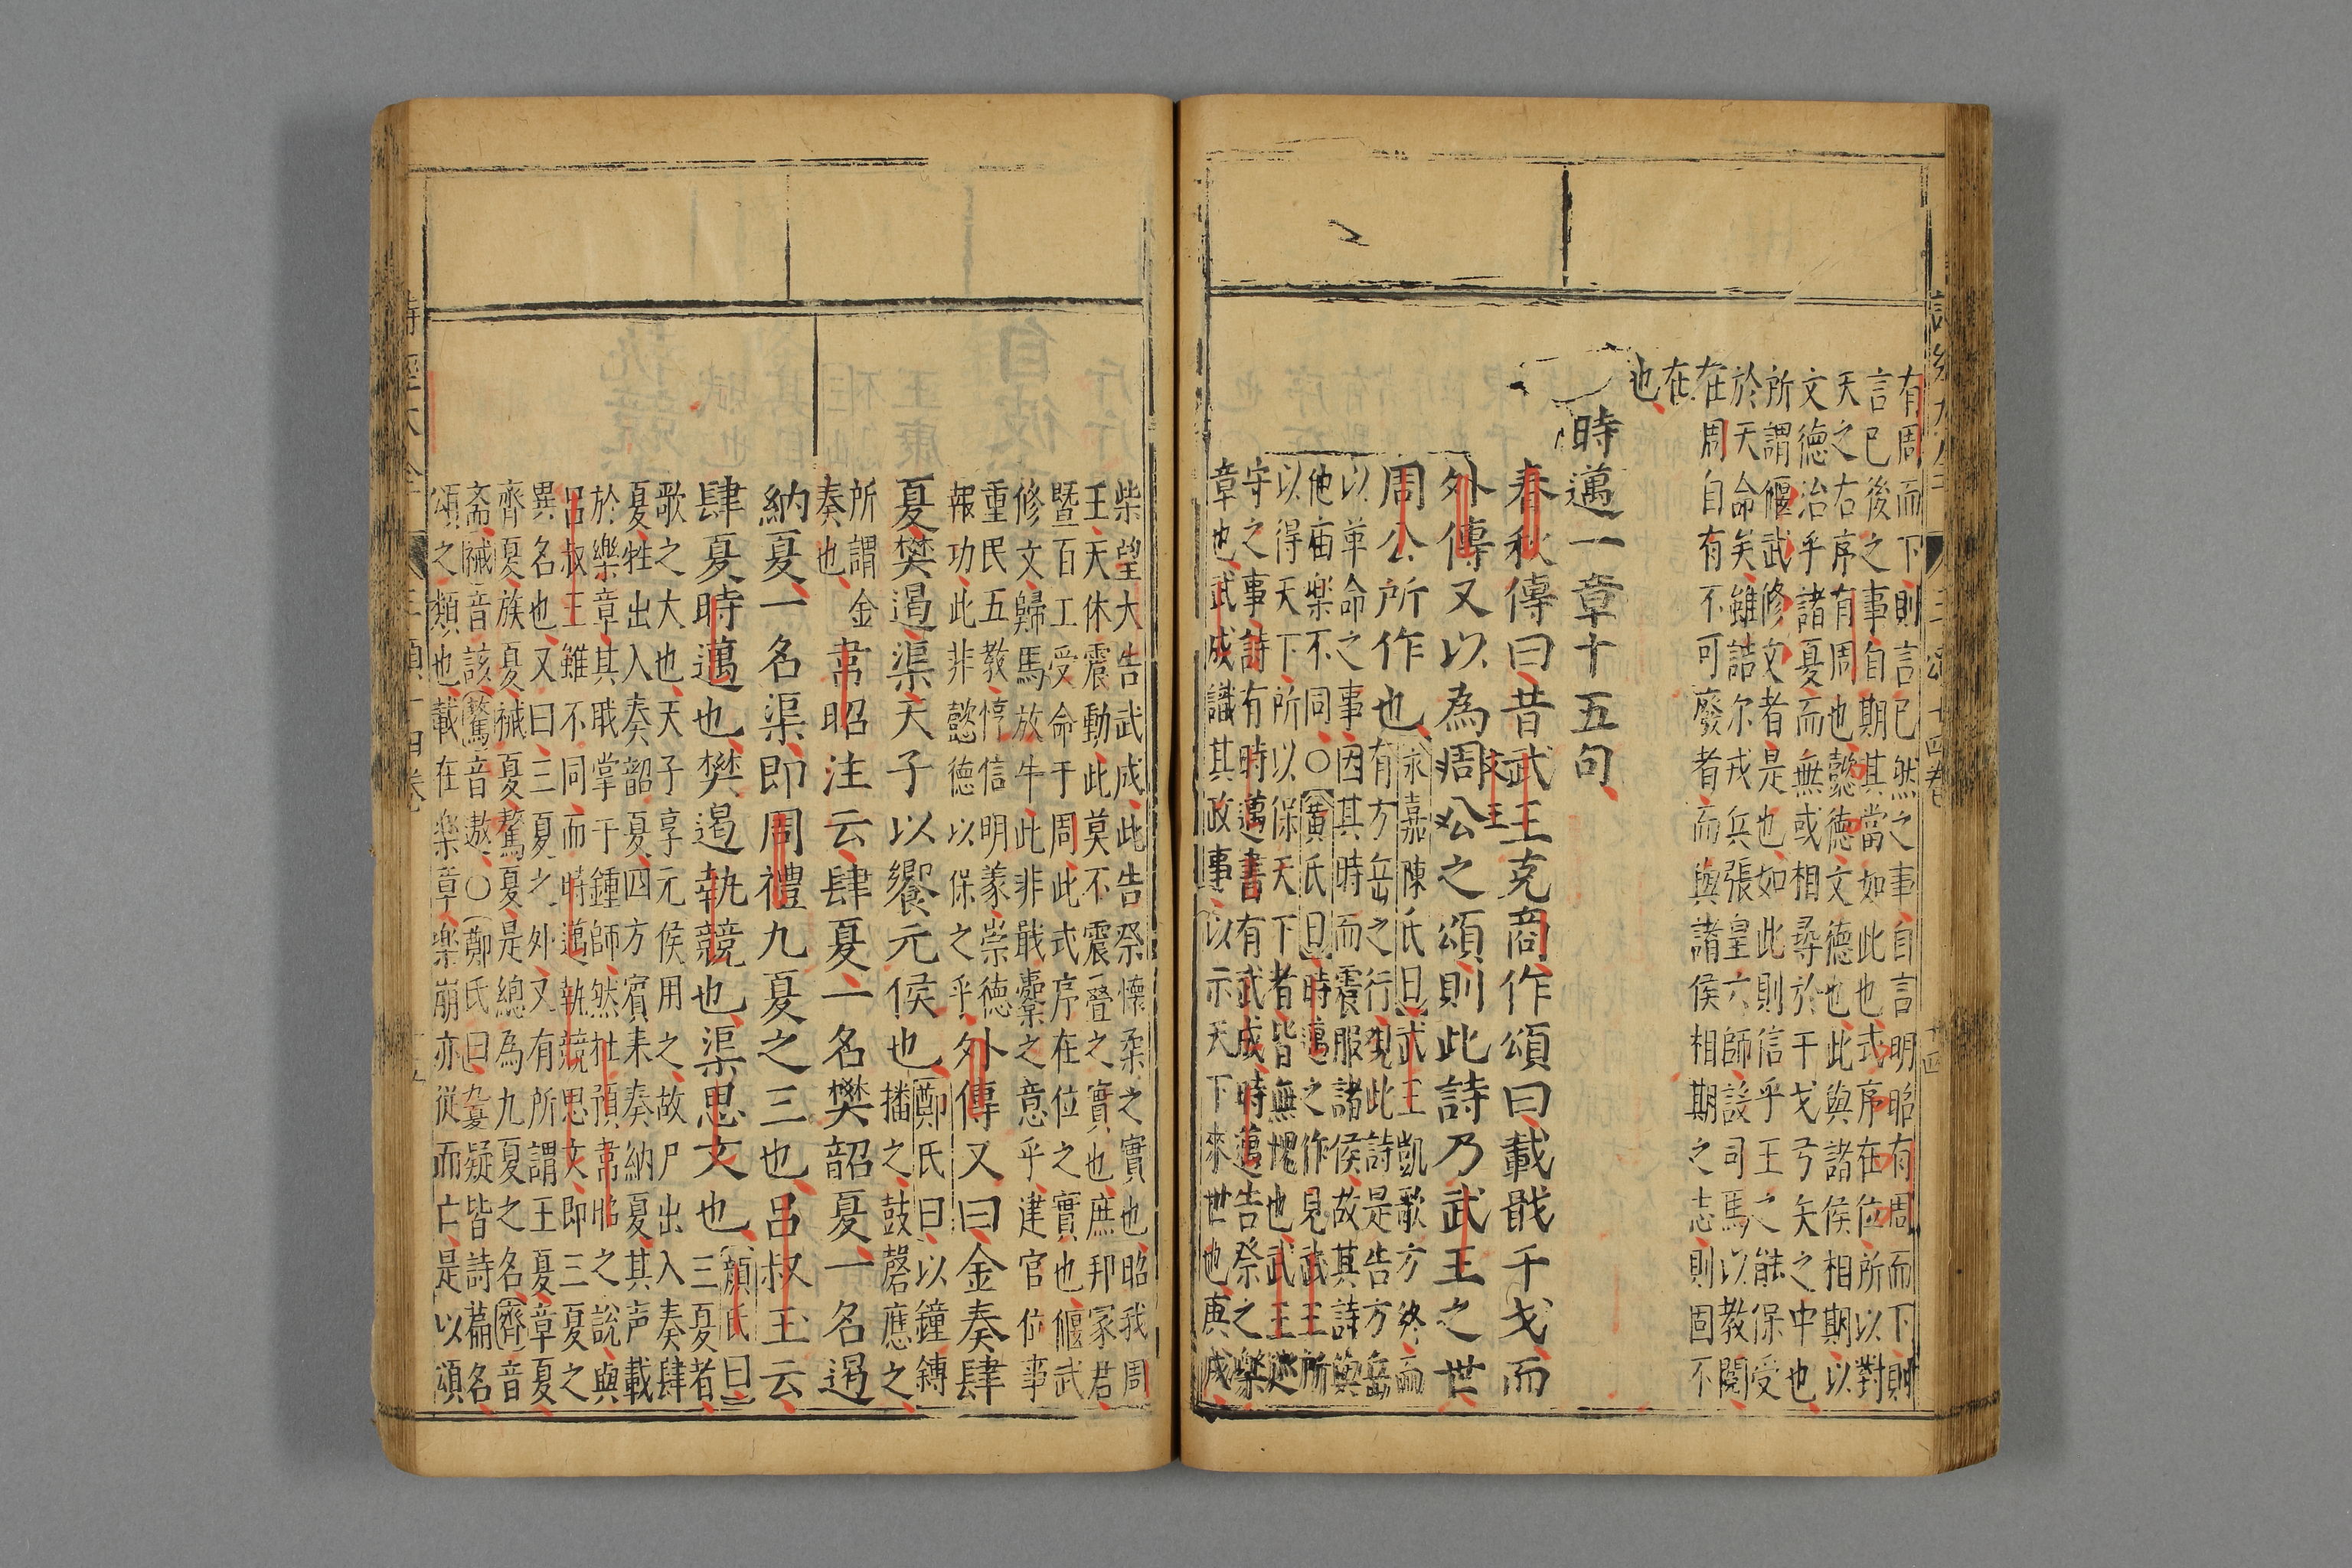 有周而下則言已然之事自言明昭有周而下則
言已後之事自期其當如此也式序在位所以對
天之右序有周也懿德文德也此與諸侯相期以
文德治乎諸夏而無或相尋於干戈弓矢之中也
所謂偃武修文者是也如此則信乎王之能保受
於天命矣雖詰尔戎兵張皇六師設司馬以教閱
在周自有不可廢者而與諸侯相期之志則固不
在
也
時邁一章十五句
春秋傳曰昔武王克商作頌曰載戢干戈而
外傳又以為周文公之頌則此詩乃武王之世
周公所作也
永嘉陳氏曰武王凱歌方終而
有方岳之行観此詩是告方岳
以革命之事因其時而震服諸侯故其詩與
他庙樂不同○黃氏曰時邁之作見武王所
以得天下所以保天下者皆無愧也武王巡
守之事詩有時邁書有武成時邁告祭之樂
章也武成識其政事以示天下來世也庚戌
柴望大告武成此告祭懷柔之實也昭我周
王天休震動此莫不震疊之實也庶邦冢君
暨百工受命于周此式序在位之實也偃武
修文歸馬放牛此非戢櫜之意乎建官位事
重民五教惇信明義崇德
報功此非懿德以保之乎
外傳又曰金奏肆
夏樊遏渠天子以饗元侯也
鄭氏曰以鐘鏄
播之鼓磬應之
所謂金
奏也
韋昭注云肆夏一名樊韶夏一名遏
納夏一名渠即周禮九夏之三也呂叔玉云
肆夏時邁也樊遏執競也渠思文也
顏氏曰
三夏者
歌之大也天子享元侯用之故尸出入奏肆
夏牲出入奏韶夏四方賓来奏納夏其声載
於樂章其職掌于鍾師然杜預韋昭之說與
呂叔王雖不同而時邁執競思文即三夏之
異名也又曰三夏之外又有所謂王夏章夏
齊夏族夏祴夏驁夏是總為九夏之名齊音
斋祴音該驁音遨○鄭氏曰九夏疑皆詩篇名
頌之類也載在樂章樂崩亦從而亡是以頌